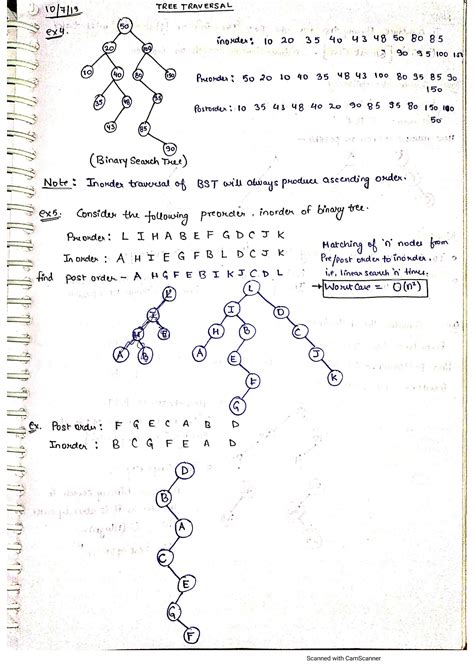 10/7/19
TREE TRAVERSAL
ex4.
50
20
10
40
35
48
43
85
90
inorder: 10 20 35 40 43 48 50 80 85
90 95 100
Preorder: 50 20 10 40 35 48 43 100 80 95 85 90
150
Postorder: 10 35 43 48 40 20 90 85 95 80 150 100
50
(Binary Search Tree)
Note: Inorder traversal of BST will always produce ascending order.
ex5. Consider the following preorder, inorder of binary tree.
Preorder: L I H A B E F G D C J K
Inorder: A H I E G F B L D C J K
find post order - A H G F E B I K J C D L
Matching of 'n' nodes from
Pre/post order to inorder.
i.e. linear search 'n' times.
→ Worst Case = O(n²)
L
I
H
A
B
L
I D
H B C
A E J
F K
G
ex. Post order: F G E C A B D
Inorder: B C G F E A D
D
B
A
C
E
G
F
Scanned with CamScanner